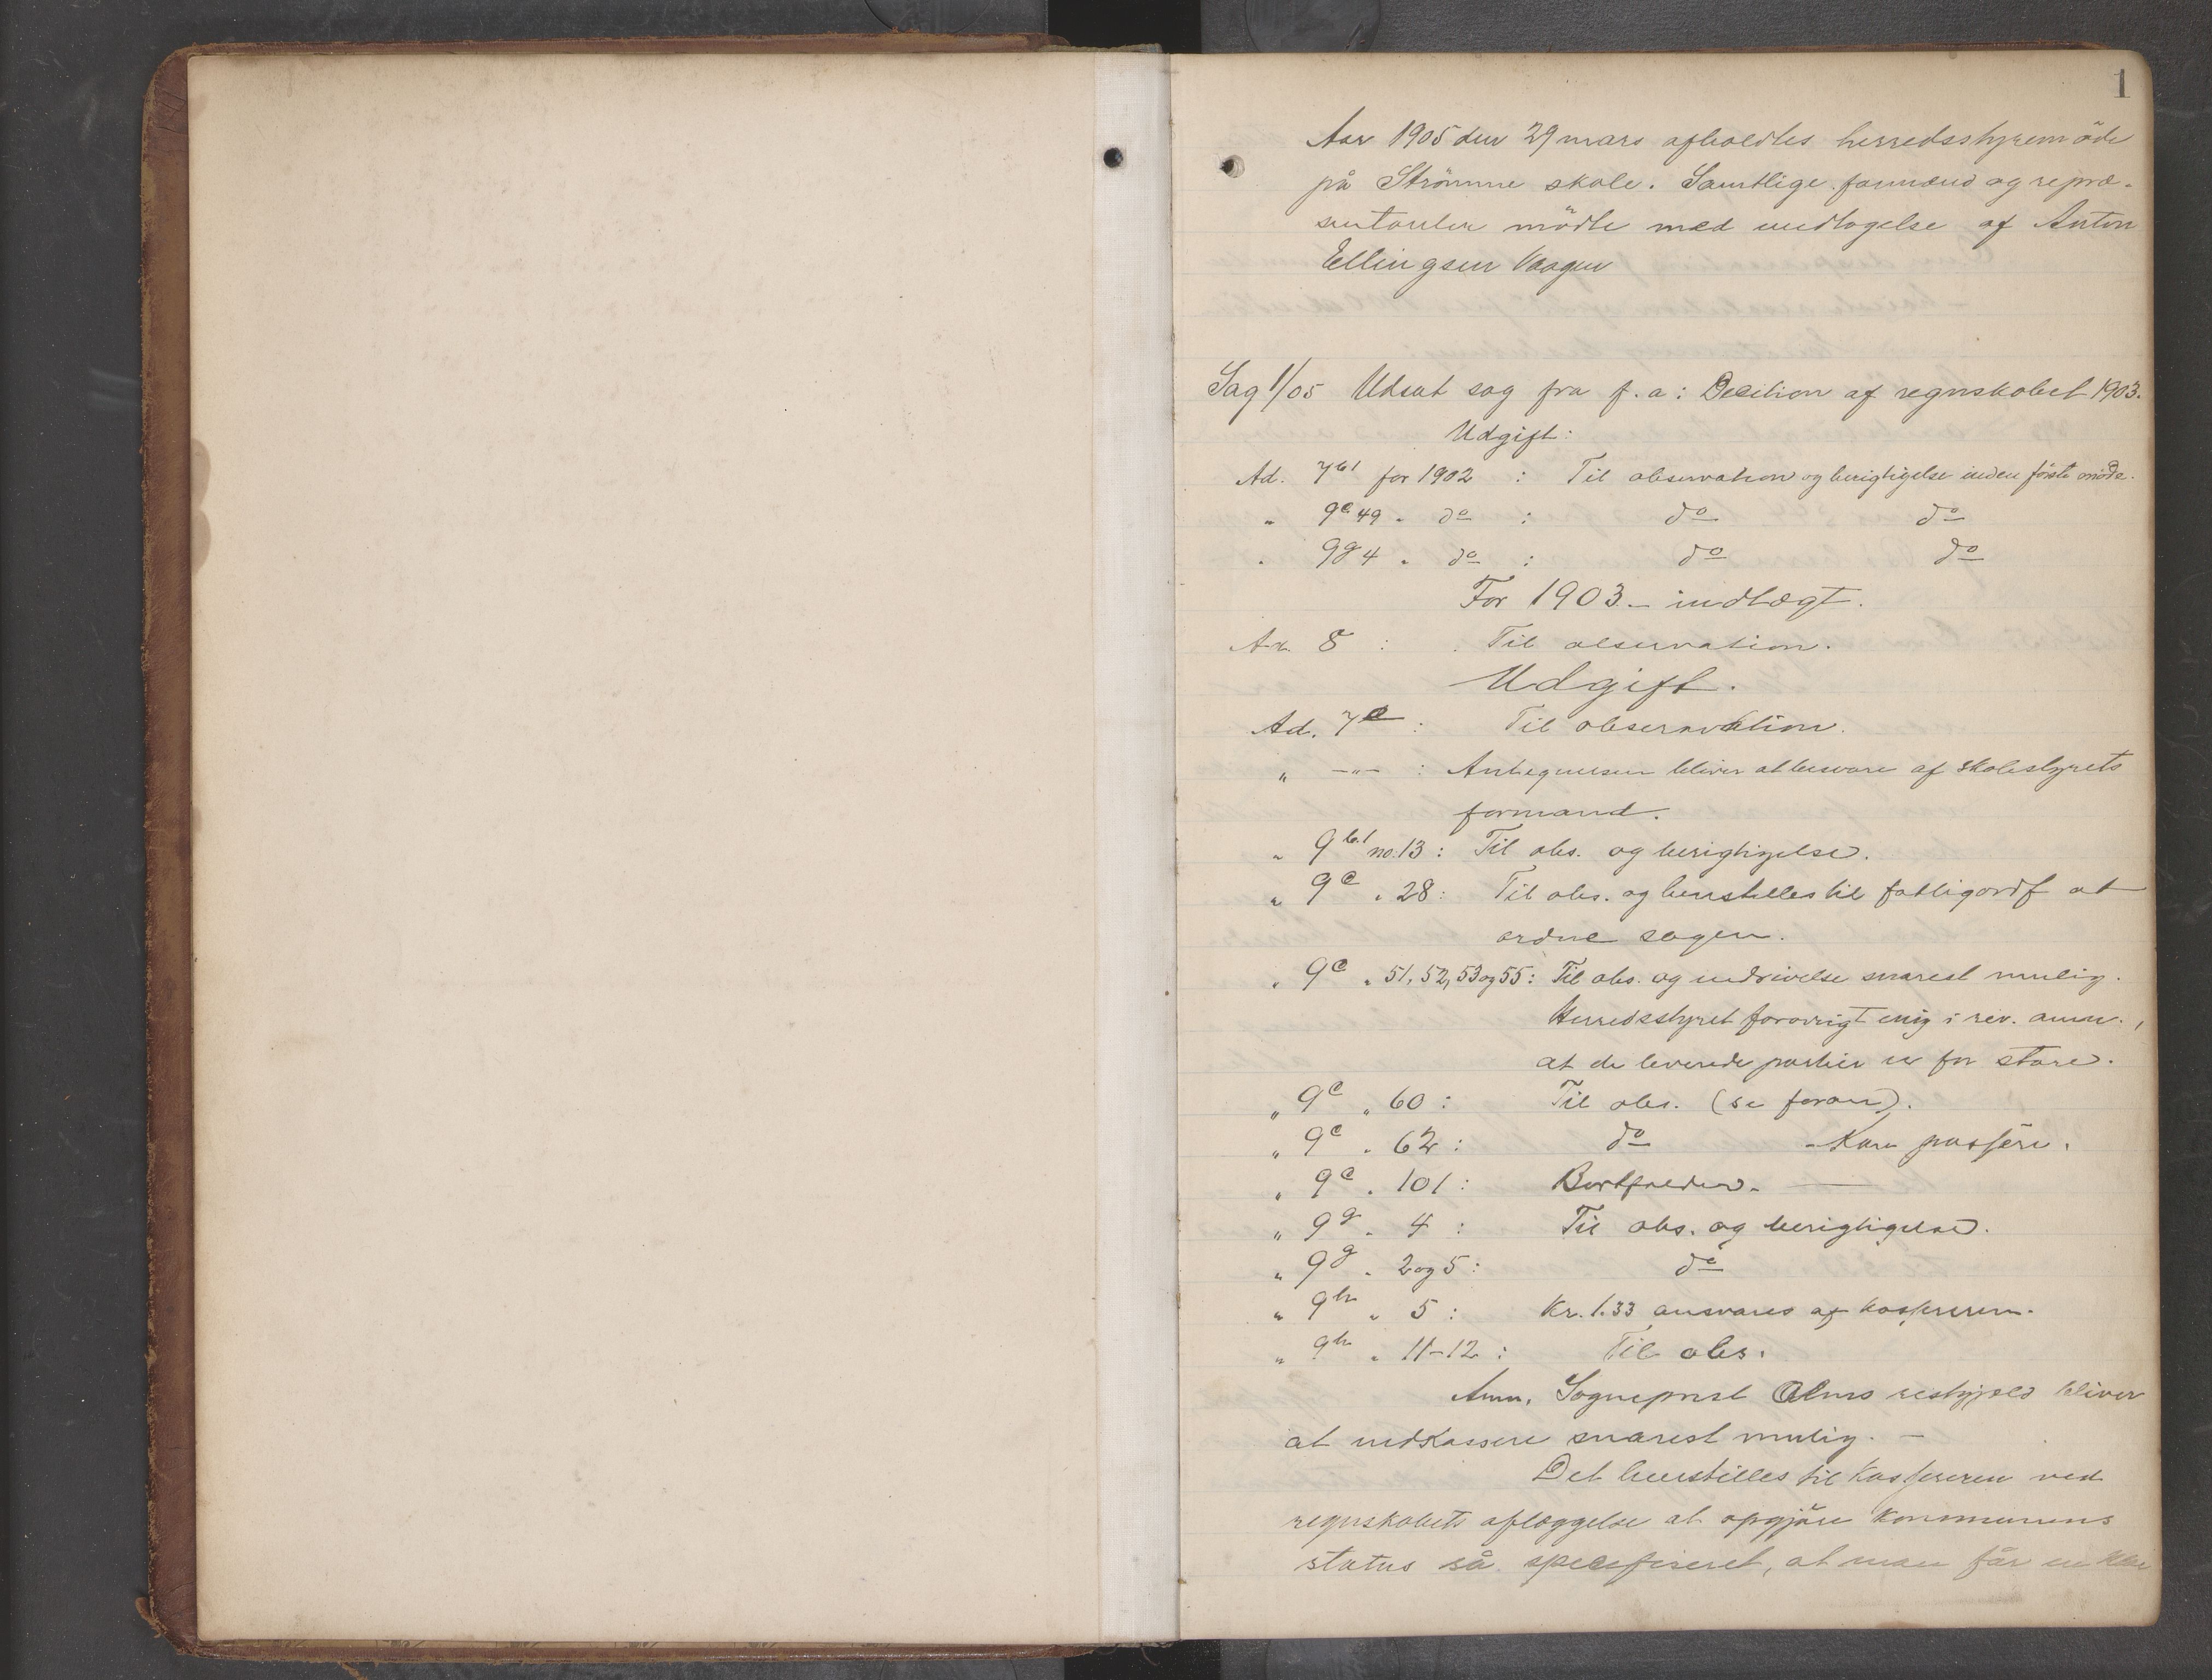 1
Aar 1905 den 29 mars afholdtes herredsstyremöde
på Strömme skole. Samtlige formænd og repræ-
sentanter mödte med undtagelse af Anton
Ellingsen Vaagen
Sag 1/05 Udsat sag fra f. a: Decition af regnskabet 1903.
Udgift:
Ad. 7b1 for 1902 : Til observation og berigtigelse inden förste möde.
" 9c 49 " do : do do
" 9g 4 " do : do do
For 1903 - indtægt.
Ad. 8 : Til observation.
Udgift.
Ad. 7c : Til observation.
" -"- : Antegnelsen bliver at besvare af skolestyrets
formand.
" 9b1 no. 13 : Til obs. og berigtigelse.
" 9c " 28 : Til obs. og henstilles til fattigordf at
ordne sagen.
" 9c " 51, 52, 53 og 55 : Til obs. og inddrivelse snarest mulig.
Herredsstyret forøvrigt enig i rev. anm.,
at de leverede partier er for store.
" 9c " 60 : Til obs. (se foran).
" 9c " 62 : do - Kan passere.
" 9c " 101 : Bortfalder. —
" 9g " 4 : Til obs. og berigtigelse.
" 9g " 2 og 5 : do
" 9h " 5 : Kr. 1.33 ansvares af kassereren.
" 9h " 11-12 : Til obs.
Anm. Sogneprest Alms restgjæld bliver
at indkassere snarest mulig. —
Det henstilles til Kassereren ved
regnskabets aflæggelse at opgjöre Kommunens
status så specifiseret, at man får en klar